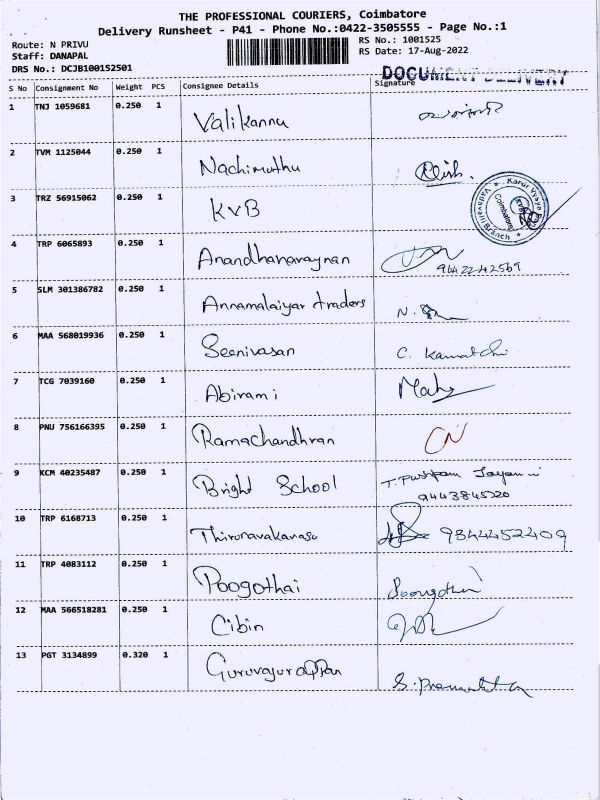 THE PROFESSIONAL COURIERS, Coimbatore
Delivery Runsheet - P41 - Phone No.:0422-3505555 - Page No.:1
Route: N PRIVU
RS No.: 1001525
Staff: DANAPAL
RS Date: 17-Aug-2022
DRS No.: DCJB100152501
DOCUMENT DELIVERY
S No Consignment No Weight PCS Consignee Details Signature
1 TNJ 1059681 0.250 1 Valikannu
2 TVM 1125044 0.250 1 Nachimuthu
3 TRZ 56915062 0.250 1 KVB
Karur Vysya Bank
Vadavalli Branch
Coimbatore
4 TRP 6065893 0.250 1 Anandhanaraynan
9842242569
5 SLM 301386782 0.250 1 Annamalaiyar traders N.
6 MAA 568019936 0.250 1 Seenivasan C. Kamatchi
7 TCG 7039160 0.250 1 Abirami
8 PNU 756166395 0.250 1 Ramachandhran CN
9 KCM 40235487 0.250 1 Bright School T. Pushpam
9443845220
10 TRP 6168713 0.250 1 Thirunavakarasu 9844452409
11 TRP 4083112 0.250 1 Poogothai
12 MAA 566518281 0.250 1 Cibin
13 PGT 3134899 0.320 1 Guruvajurappan